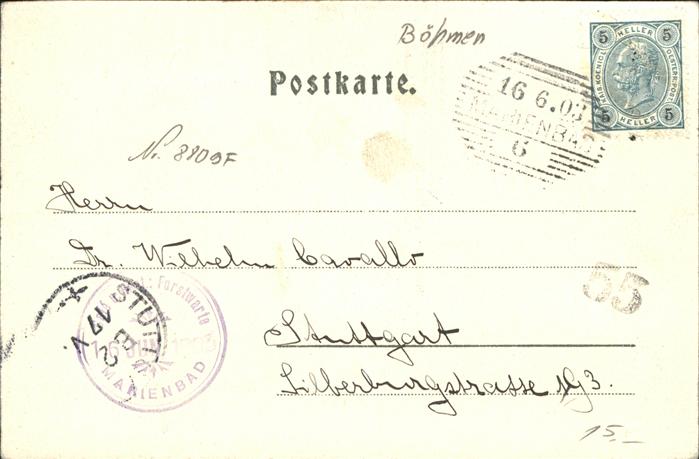 Böhmen
5 HELLER 5
KAIS. KOENIG. OESTERR. POST.
5 HELLER 5
Postkarte.
16 6.03
MARIENBAD
6
No. 8809F
Herrn
Dr. Wilhelm Cavallo
55
Forstwarte
MARIENBAD
STUTTG
17 V
Stuttgart
Silberburgstrasse 193.
15.-